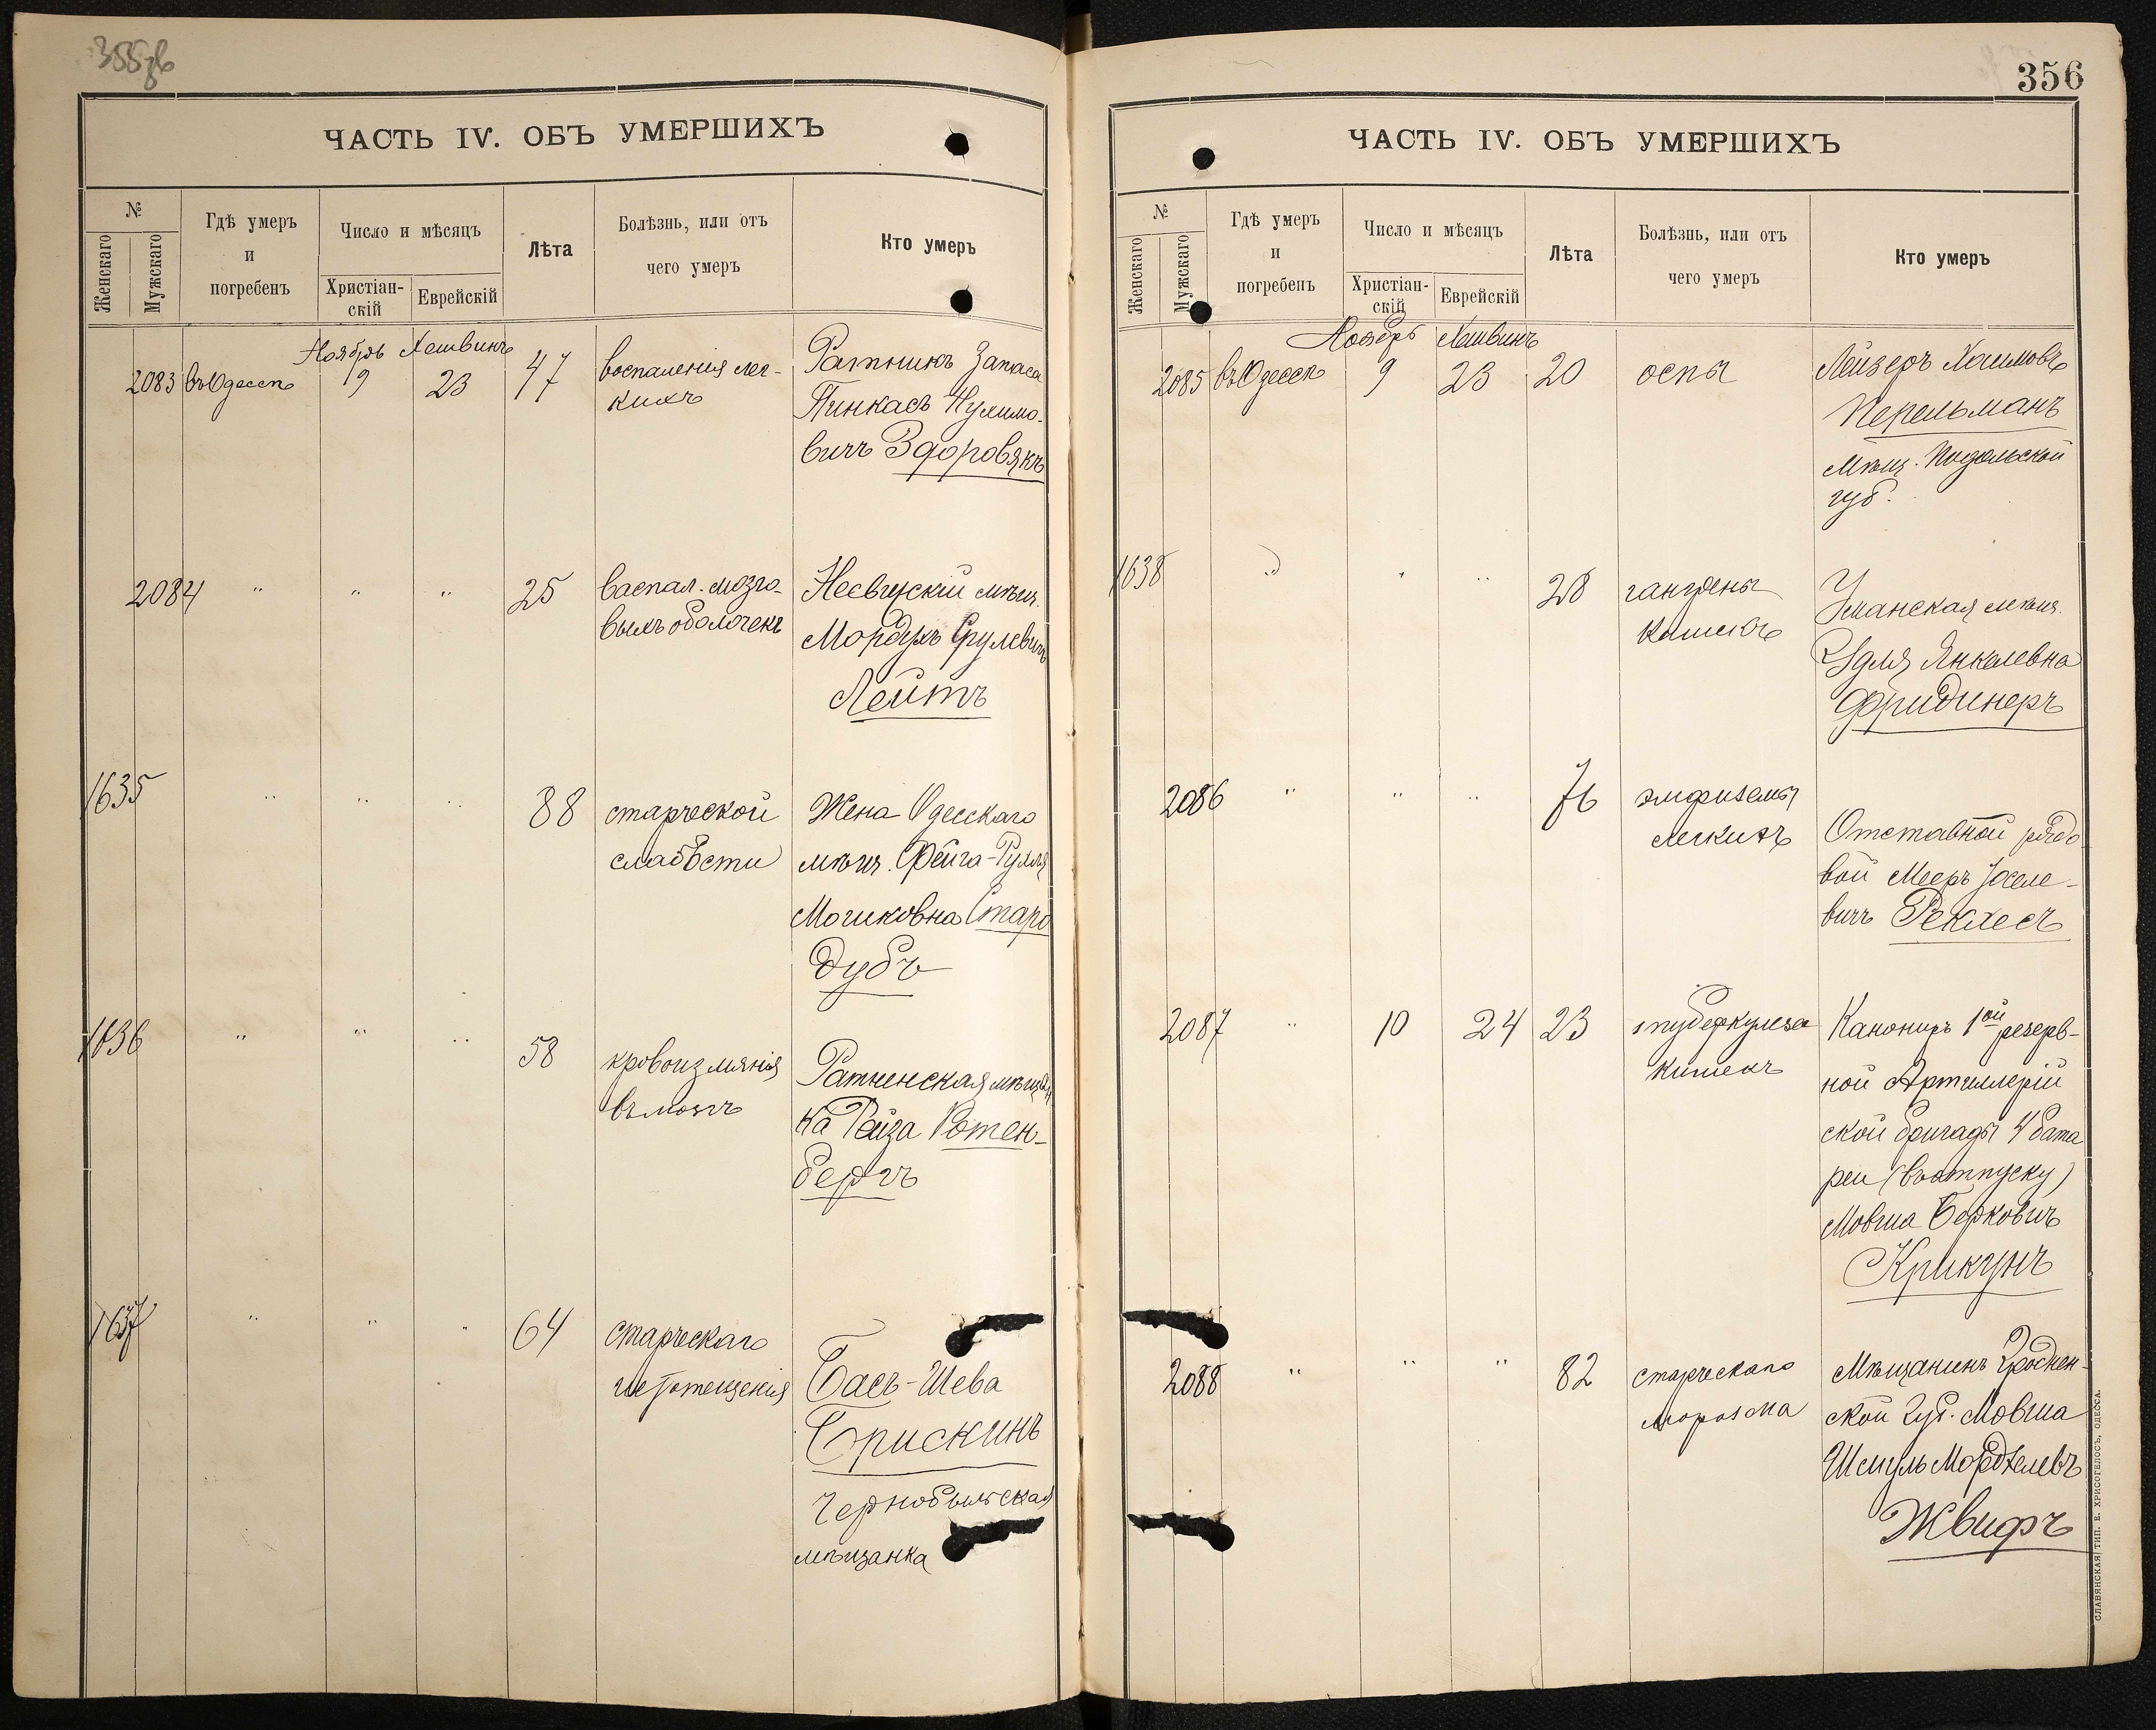 355об
ЧАСТЬ IV. ОБЪ УМЕРШИХЪ
№
Женскаго
Мужскаго
Гдѣ умеръ
и
погребенъ
Число и мѣсяцъ
Христіан-
скій
Еврейскій
Лѣта
Болѣзнь, или отъ
чего умеръ
Кто умеръ
Ноябрь Хешвинъ
2083 въ Одессѣ 9 23 47
воспаленія лег-
кихъ
Ратникъ Запаса
Пинкасъ Нухимо-
вичъ Здоровякъ
2084 " " " 25
воспал. мозго-
выхъ оболочекъ
Несвижскій мѣщ.
Мордухъ Срулевичъ
Лейтъ
1635 " " " 88
старческой
слабости
Жена Одесскаго
мѣщ. Фейга-Рухля
Мошковна Старо
дубъ
1636 " " " 58
кровоизліянія
въ мозгъ
Ратненская мѣщан
ка Рейза Ротен-
бергъ
1637 " " " 64
старческаго
истощенія
Бась-Шева
Брискинъ
Чернобыльская
мѣщанка
356
ЧАСТЬ IV. ОБЪ УМЕРШИХЪ
№
Женскаго
Мужскаго
Гдѣ умеръ
и
погребенъ
Число и мѣсяцъ
Христіан-
скій
Еврейскій
Лѣта
Болѣзнь, или отъ
чего умеръ
Кто умеръ
Ноябрь Хешвинъ
2085 въ Одессѣ 9 23 20
оспы
Лейзеръ Хаимовъ
Перельманъ
Мѣщ. Подольской
губ.
1638 " " " 28
гангрены
кишекъ
Уманская мѣщ.
Удля Янкелевна
Фридинеръ
2086 " " " 76
эмфиземы
легкихъ
Отставной рядо-
вой Мееръ Іоселе-
вичъ Реклесъ
2087 " 10 24 23
туберкулеза
кишекъ
Канониръ 1ой резерв-
ной Артиллерій
ской бригады 4 бата
реи (въ отпуску)
Мовша Берковичъ
Крикунъ
2088 " " " 82
старческаго
маразма
Мѣщанинъ Гроднен-
ской Губ. Мовша
Шмуль Мордхелевъ
Жвифъ
СЛАВЯНСКАЯ ТИП. Е. ХРИСОГЕЛОСЪ, ОДЕССА.